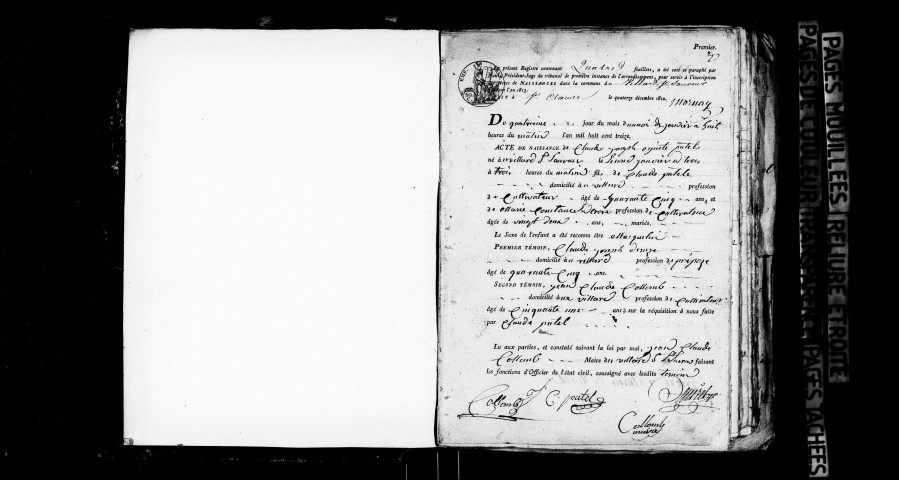 Premier.
Le présent Registre contenant feuillets, a été coté et paraphé par
Président-Juge du tribunal de première instance de l'arrondissement, pour servir à l'inscription
des Actes de NAISSANCES dans la commune de Villard St Sauveur
l'an 1813.
à St Claude le quatorze décembre 1812.
Du quatrieme jour du mois de janvier à huit
heures du matin l'an mil huit cent treize.
ACTE DE NAISSANCE de Claude joseph patel
né à villard St Sauveur le janvier à trois
à trois heures du matin fils de Claude patel
domicilié au villard profession
de Cultivateur âgé de quarante Cinq ans, et
de Marie Constance profession de Cultivatrice
âgée de vingt deux ans, mariés.
Le Sexe de l'enfant a été reconnu être Masculin
PREMIER TÉMOIN, Claude joseph
domicilié au villard profession de
âgé de quarante Cinq ans.
SECOND TÉMOIN, jean Claude Collomb
domicilié aux villard profession de Cultivateur
âgé de Cinquante ans; sur la réquisition à nous faite
par Claude patel
Lu aux parties, et constaté suivant la loi par moi, jean Claude
Collomb Maire du villard St Sauveur faisant
les fonctions d'Officier de l'état civil, soussigné avec lesdits temoins
Collomb C. patel
Collomb
maire
PAGES MOUILLEES RELIURE ETROITE
PAGES DE COULEUR TRANSPARENTE PAGES TACHEES